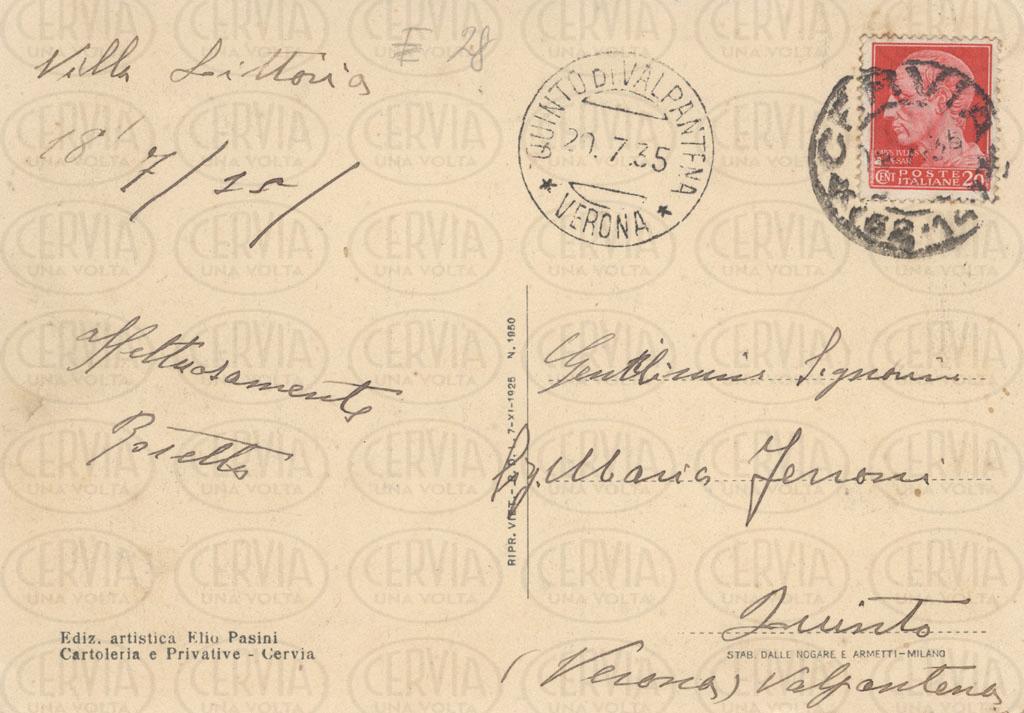 Villa Littoria
E 28
18
7/
Affettuosamente
Rosetta
Ediz. artistica Elio Pasini
Cartoleria e Privative - Cervia
QUINTO DI VALPANTENA
20.7.35
VERONA
CERVIA
35
POSTE
CENT ITALIANE 20
RIPR. VIET. - 7-XI-1925 N. 1950
Signorina
Maria Ferroni
Quinto
STAB. DALLE NOGARE E ARMETTI-MILANO
(Verona) Valpantena
CERVIA
UNA VOLTA